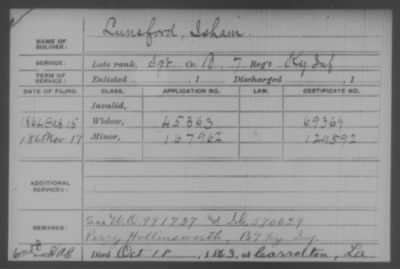 NAME OF SOLDIER: Lunsford, Isham.
SERVICE: Late rank, Sgt Co B, 7 Reg't Ky Inf
TERM OF SERVICE: Enlisted , 1 Discharged , 1
DATE OF FILING. CLASS. APPLICATION NO. LAW. CERTIFICATE NO.
Invalid,
1864 Feb 15 Widow, 45363 69369
1868 Nov 17 Minor, 167962 129592
ADDITIONAL SERVICES:
REMARKS: See W.O. 991737
Perry Hollinsworth, B 7 Ky. Inf.
Died Oct 18, 1863, at Carrolton, La